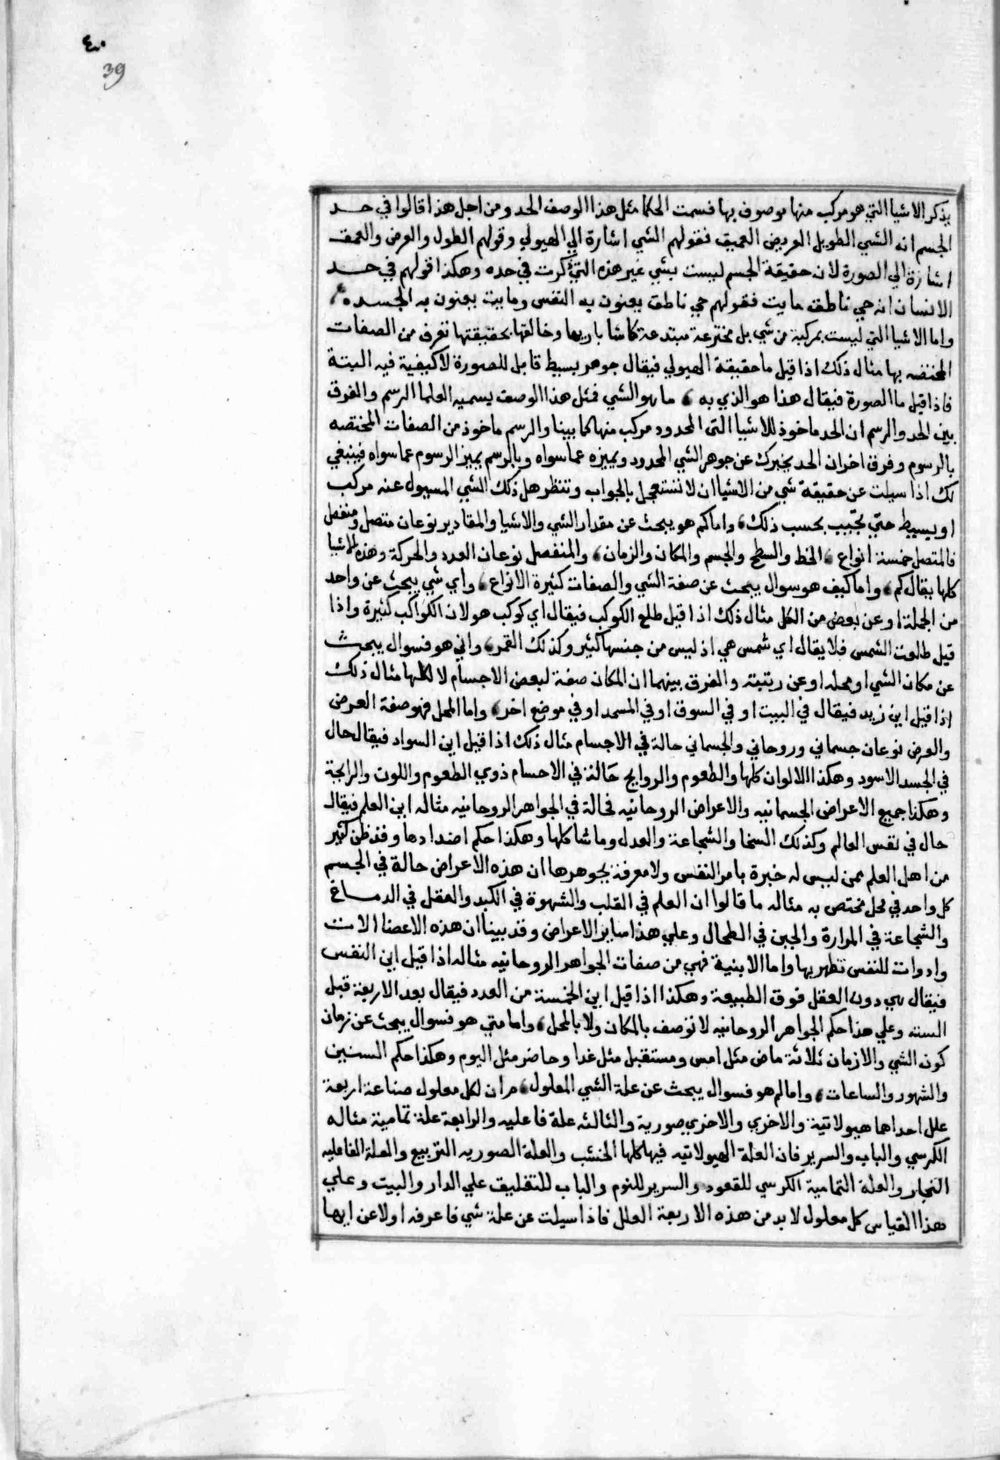 ٤٠
39
يذكر الاشيا التي هو مركب منها موصوف بها فسمت الحكما مثل هذا الوصف الحد ومن اجل هذا قالوا في حد
الجسم انه الشي الطويل العريض العميق فقولهم الشي اشارة الي الهيولي وقولهم الطول والعرض والعمق
اشارة الي الصورة لان حقيقة الجسم ليست بشي غير هذه التي ذكرت في حده وهكذا قولهم في حد
الانسان انه حي ناطق مايت فقولهم حي ناطق يعنون به النفس ومايت يعنون به الجسد
واما الاشيا التي ليست بمركبة من شي بل مخترعة مبتدعة كما شا باريها وخالقها بحقيقتها تعرف من الصفات
المختصه بها مثال ذلك اذا قيل ما حقيقة الهيولي فيقال جوهر بسيط قابل للصورة لا كيفية فيه البتة
فاذا قيل ما الصورة فيقال هذا هو الذي به ما هو الشي فمثل هذا الوصف يسميه العلما الرسم والفرق
بين الحد والرسم ان الحد ماخوذ للاشيا التي المحدود مركب منها كما بينا والرسم ماخوذ من الصفات المختصه
بالرسوم وفرق اخر ان الحد يخبرك عن جوهر الشي المحدود ويميزه عما سواه وبالرسم يميز الرسوم عما سواه فينبغي
لك اذا سيلت عن حقيقة شي من الاشيا ان لا تستعجل بالجواب وتنظر هل ذلك الشي المسيول عنه مركب
او بسيط حتي تجيب بحسب ذلك واما كم هو يبحث عن مقدار الشي والاشيا والمقادير نوعان متصل ومنفصل
فالمتصل خمسة انواع الخط والسطح والجسم والمكان والزمان والمنفصل نوعان العدد والحركة وهذه الاشيا
كلها يقال كم واما كيف هو سوال يبحث عن صفة الشي والصفات كثيرة الانواع واي شي يبحث عن واحد
من الجملة او عن بعض من الكل مثال ذلك اذا قيل طلع الكوكب فيقال اي كوكب هو لان الكواكب كثيرة واذا
قيل طلعت الشمس فلا يقال اي شمس هي اذ ليس من جنسها كثير وكذلك القمر واني هو فسوال يبحث
عن مكان الشي او محله او عن رتبته والفرق بينهما ان المكان صفة لبعض الاجسام لا لكلها مثال ذلك
اذا قيل اين زيد فيقال في البيت او في السوق او في المسجد او في موضع اخر واما المحل فهو صفة العرض
والعرض نوعان جسماني وروحاني والجسماني حالة في الاجسام مثال ذلك اذا قيل اين السواد فيقال حال
في الجسد الاسود وهكذا الالوان كلها والطعوم والروايح حالة في الاجسام ذوي الطعوم واللون والرايحة
وهكذا جميع الاعراض الجسمانيه والاعراض الروحانيه فحالة في الجواهر الروحانيه مثاله اين العلم فيقال
حال في نفس العالم وكذلك السخا والشجاعة والعدل وما شاكلها وهكذا حكم اضدادها وقد ظن كثير
من اهل العلم ممن ليس له خبرة بامر النفس ولا معرفة بجوهرها ان هذه الاعراض حالة في الجسم
كل واحد في محل مختص به مثاله ما قالوا ان العلم في القلب والشهوة في الكبد والعقل في الدماغ
والشجاعة في المرارة والجبن في الطحال وعلي هذا ساير الاعراض وقد بينا ان هذه الاعضا الات
وادوات للنفس تظهر بها واما الابنية فهي من صفات الجواهر الروحانيه مثاله اذا قيل اين النفس
فيقال هي دون العقل فوق الطبيعة وهكذا اذا قيل اين الخمسة من العدد فيقال بعد الاربعة قبل
السته وعلي هذا حكم الجواهر الروحانيه لا توصف بالمكان ولا بالمحل واما متي هو فسوال يبحث عن زمان
كون الشي والازمان ثلاثة ماض مثل امس ومستقبل مثل غدا وحاضر مثل اليوم وهكذا حكم السنين
والشهور والساعات واما لم هو فسوال يبحث عن علة الشي المعلول من ان لكل معلول صناعة اربعة
علل احداها هيولاتية والاخري والاخري صورية والثالثه علة فاعليه والرابعة علة تمامية مثاله
الكرسي والباب والسرير فان العلة الهيولاتيه فيها كلها الخشب والعلة الصوريه التربيع والعلة الفاعليه
النجار والعلة التمامية الكرسي للقعود والسرير للنوم والباب للتغليق علي الدار والبيت وعلي
هذا القياس كل معلول لا بد من هذه الاربعة العلل فاذا سيلت عن علة شي فاعرفه اولا عن ايها